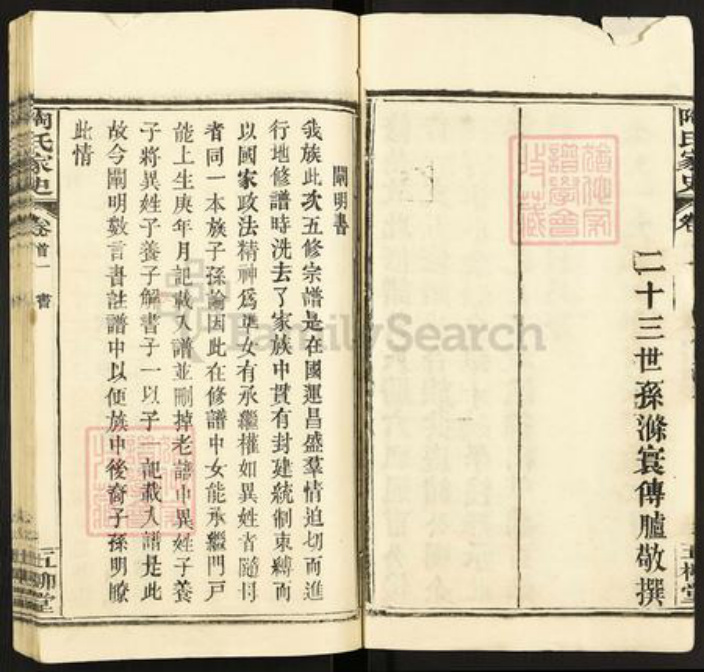 二十三世孫滌寰傳臚敬撰
闡明書
我族此次五修宗譜是在國運昌盛羣情迫切而進
行地修譜時洗去了家族中貫有封建統制束縛而
以國家政法精神爲準女有承繼權如異姓者隨母
者同一本族子孫論因此在修譜中女能承繼門戶
能上生庚年月記載入譜並刪掉老譜中異姓子養
子將異姓子養子解書子一以子一記載入譜是此
故今闡明數言書註譜中以便族中後裔子孫明瞭
此情
陶氏家史
卷首一
書
五柳堂
陶氏家史
卷
五柳堂
譜學會
收藏
FamilySearch